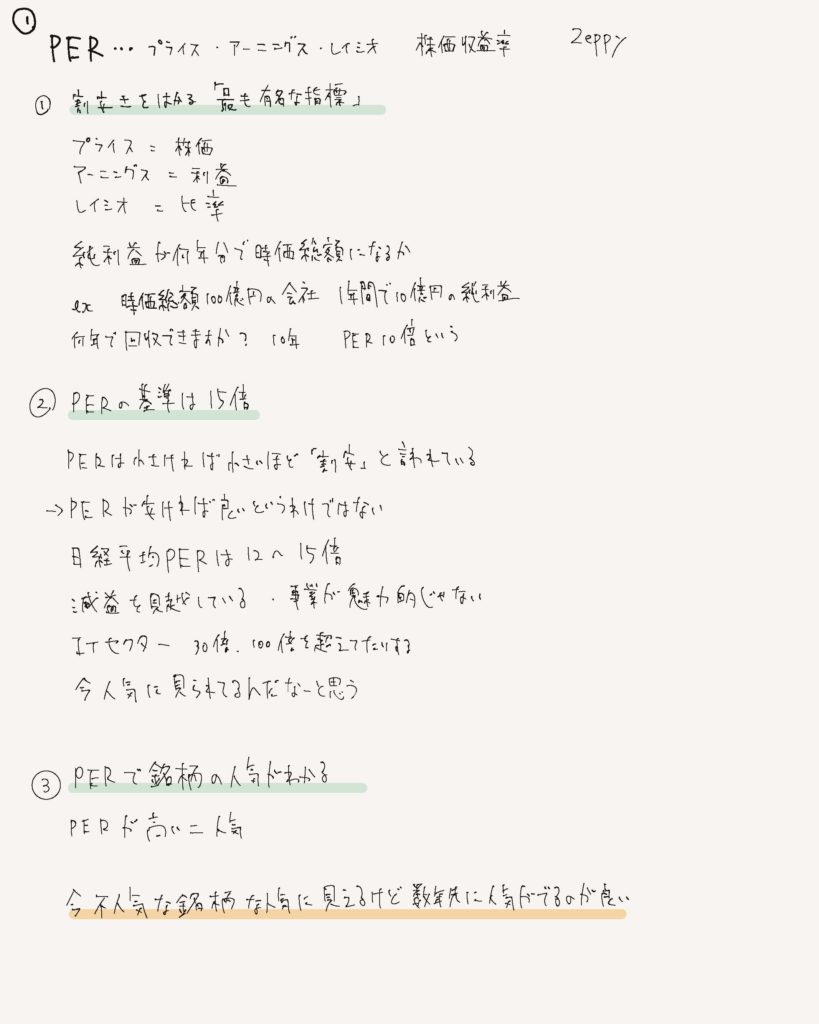 ①
PER… プライス・アーニングス・レイシオ 株価収益率 Zeppy
① 割安さをはかる「最も有名な指標」
プライス = 株価
アーニングス = 利益
レイシオ = 比率
純利益が何年分で時価総額になるか
ex 時価総額100億円の会社 1年間で10億円の純利益
何年で回収できますか? 10年 PER10倍という
② PERの基準は15倍
PERは小さければ小さいほど「割安」と言われている
→PERが安ければ良いというわけではない
日経平均PERは12〜15倍
減益を見越している・事業が魅力的じゃない
ITセクター 30倍、100倍を超えてたりする
今人気に見られてるんだなーと思う
③ PERで銘柄の人気がわかる
PERが高い=人気
今不人気な銘柄な人気に見えるけど数年先に人気がでるのが良い